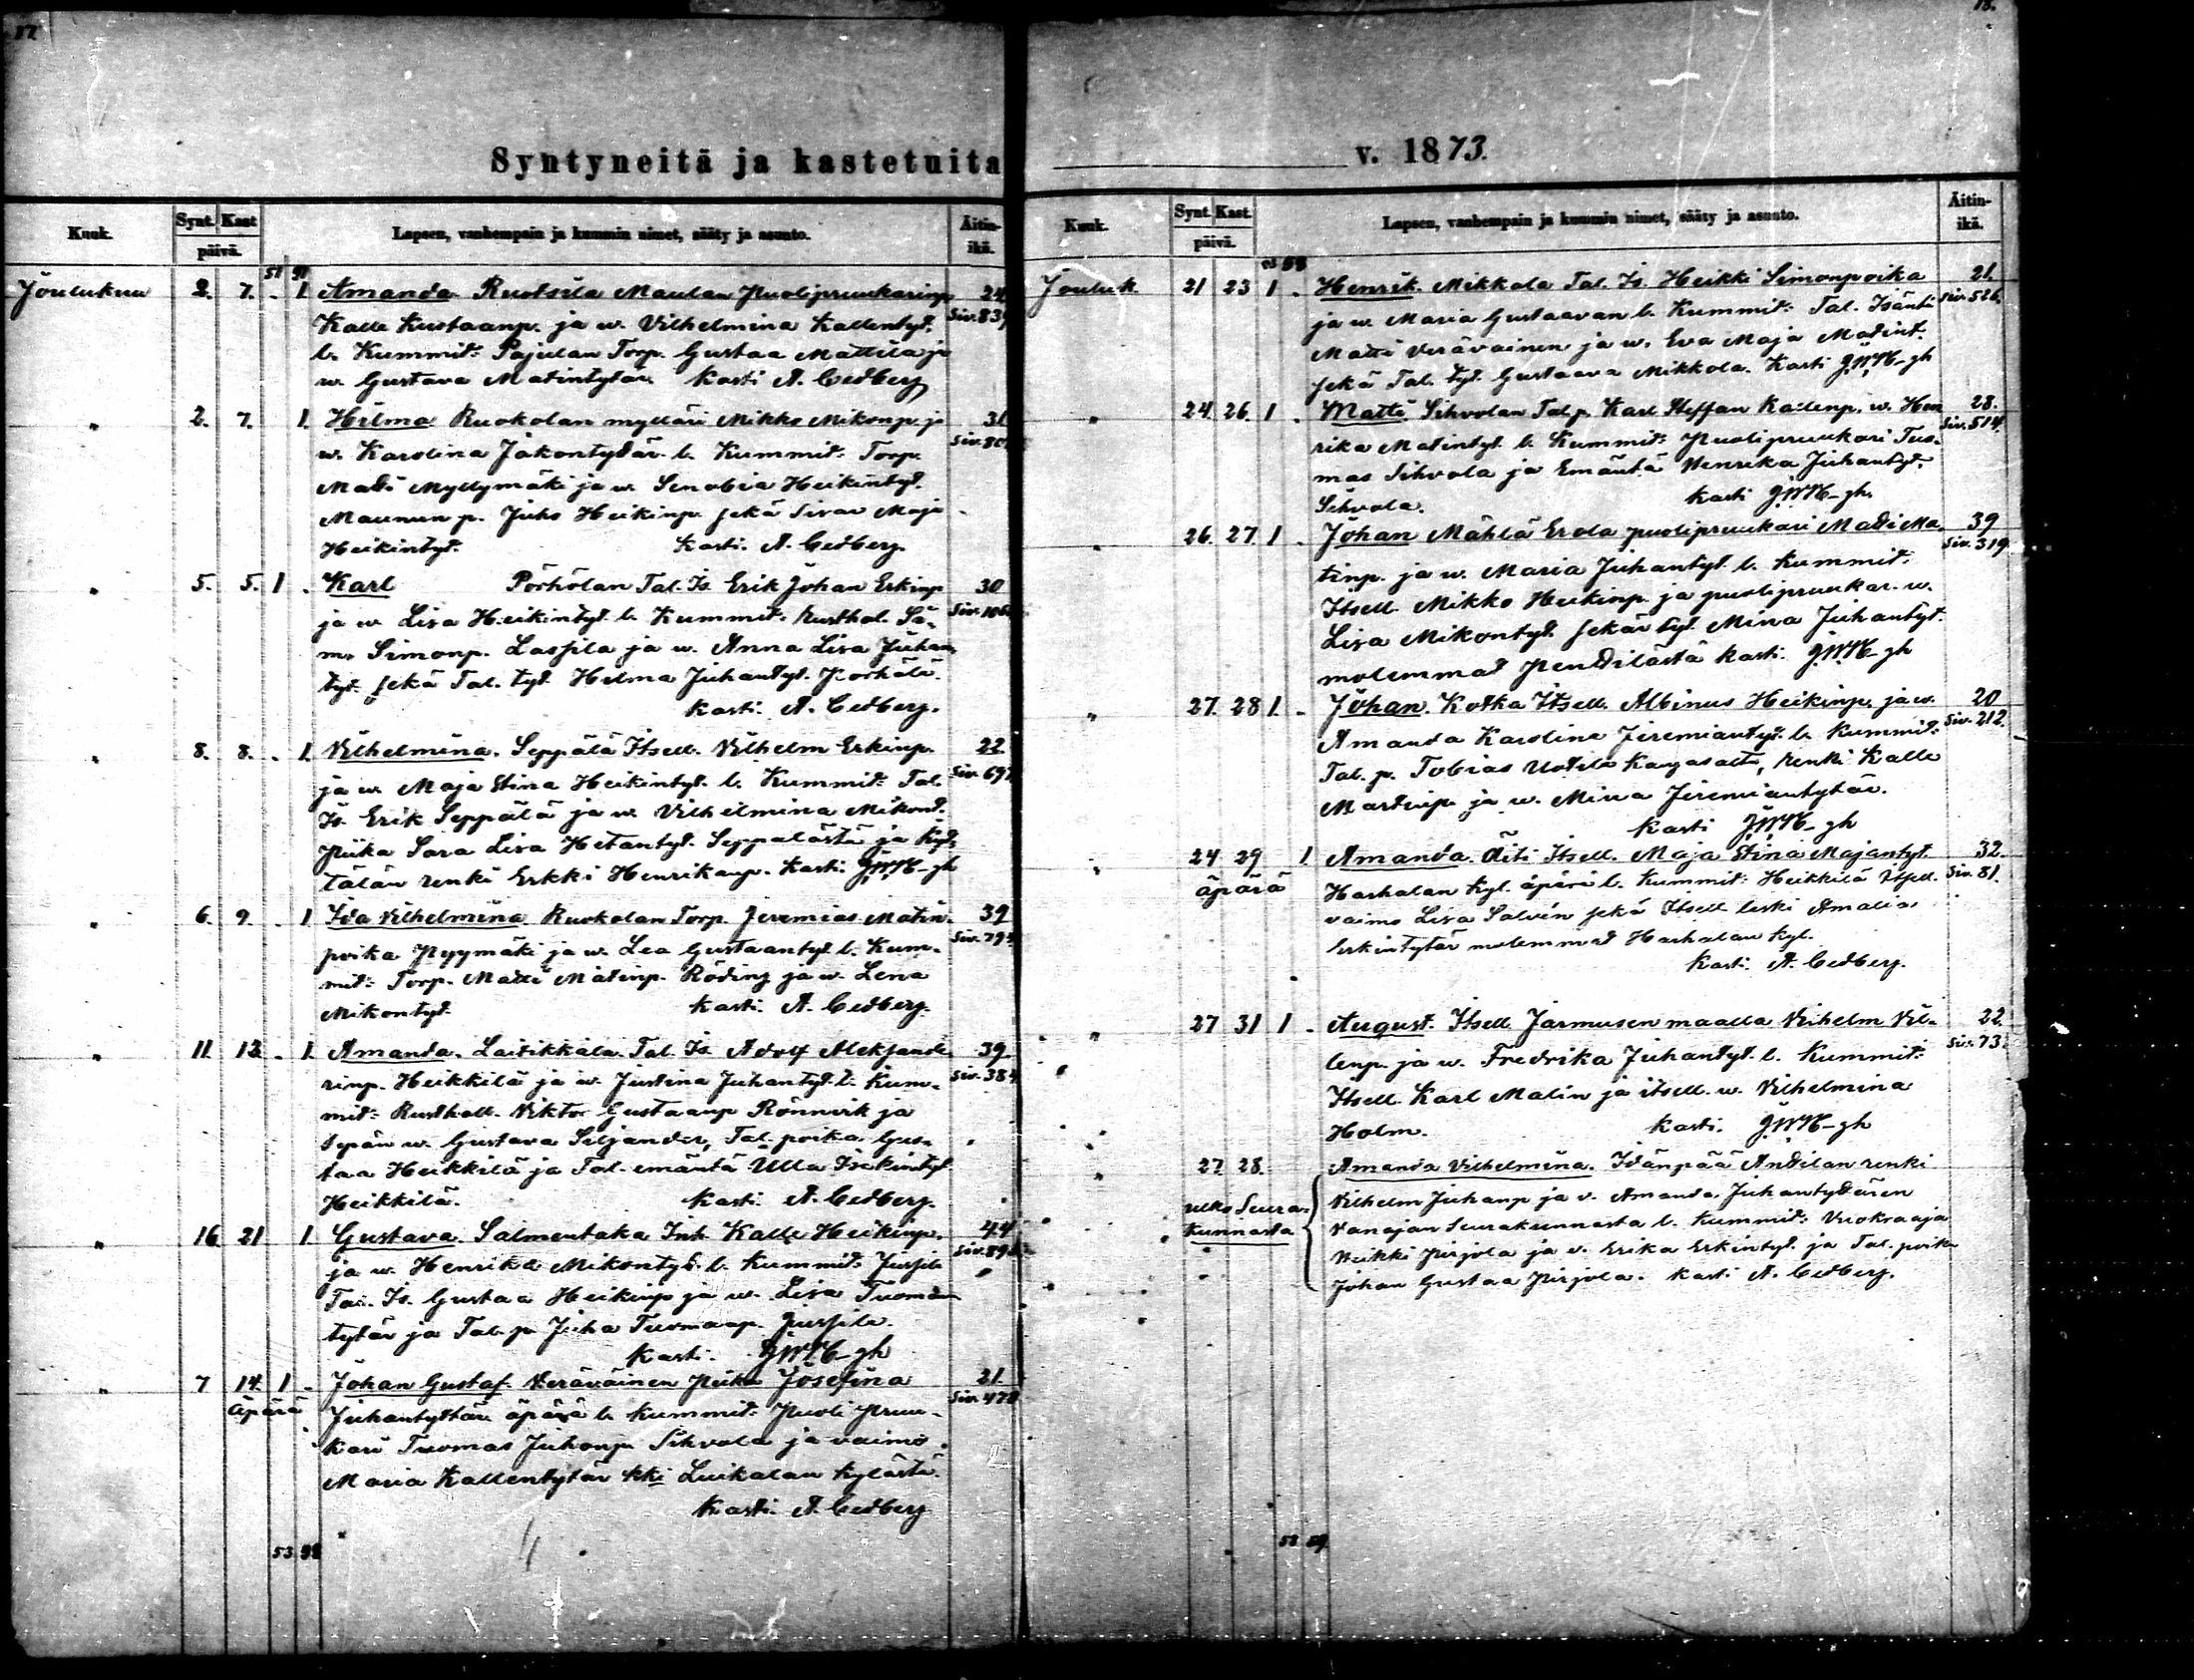 17
Syntyneitä ja kastetuita
Kuuk. Synt. Kast. päivä. Lapsen, vanhempain ja kummin nimet, sääty ja asunto. Äitin-ikä.
Joulukuu 2. 7. . 1. Amanda Ruotsila Maulan Puolipruukarinp. 24
Kalle Kustaanp. ja w. Vilhelmina Kallentyt. Siv. 839
l. Kummit: Pajulan Torp. Gustaa Mattila ja
w. Gustava Matintytär. Kasti A. Cedberg
" 2. 7. 1. Hilma Ruokolan mylläri Mikko Mikonp. ja 31
w. Karolina Jakontytär l. Kummit: Torp.
Matti Myllymäki ja w. Senobia Heikintyt.
Maunun p. Juho Heikinp. sekä Sisar Maja
Heikintyt. Kasti. A. Cedberg.
" 5. 5. 1 . Karl Pörhölän Tal. Is. Erik Johan Erkinp. 30
ja w. Lisa Heikintyt. l. Kummit: Rusthol. Sa-
m. Simonp. Lassila ja w. Anna Lisa Juhan
tyt. sekä Tal. tyt. Helma Juhantyt. Pörhölä.
Kasti: A. Cedberg.
" 8. 8. . 1. Vilhelmina. Seppälä Itsell. Vilhelm Erkinp. 22
ja w. Maja Stina Heikintyt. l. Kummit: Tal. Siv. 697
Is. Erik Seppälä ja w. Vilhelmina Mikont.
Piika Sara Lisa Hetantyt. Seppälästä ja
tälän renki Erkki Henrikanp. Kasti. GWH-gh
" 6. 9. . 1 Ida Vilhelmina. Ruokolan Torp. Jeremias Matin- 39
poika Pyymäki ja w. Lea Gustaantyt l. Kum- Siv. 794
mit: Torp. Matti Matinp. Röding ja w. Lena
Mikontyt. Kasti. A. Cedberg.
" 11. 13. . 1. Amanda. Laitikkala. Tal. Is. Adolf Aleksande- 39.
rinp. Heikkilä ja w. Justina Juhantyt. l. Kum- Siv. 384
mit: Rusthall. Viktor Gustaanp. Rönnvik ja
Sepän w. Gustava Siljander, Tal. poika Gus-
taa Heikkilä ja Tal. emäntä Ulla Isakintyt.
Heikkilä. Kasti. A. Cedberg.
" 16 21 1 Gustava. Salmentaka Inh. Kalle Heikinp. 44
ja w. Henrika Mikontyt. l. Kummit: Jussila
Tal. Is. Gustaa Heikinp. ja w. Lisa Tuoman
tytär ja Tal. p. Juha Tuomaanp. Jussila.
Kasti. GWH-gh
" 7 14. 1 - Johan Gustaf. Verävainen Piika Josefina 21
äpärä Juhantyttären äpärä l. Kummit: Puoli Pruu- Siv. 478
kari Tuomas Juhanp. Sihvola ja vaimo
Maria Kallentytär kki Luikalan kylästä.
Kasti. A. Cedberg
53 98
18.
v. 1873.
Kuuk. Synt. Kast. päivä. Lapsen, vanhempain ja kummin nimet, sääty ja asunto. Äitin-ikä.
Jouluk. 21 23 1 . Henrik. Mikkola Tal. Is. Heikki Simonpoika 21.
ja w. Maria Gustaavan l. Kummit: Tal. Isäntä Siv. 526.
Matti Verävainen ja w. Eva Maja Matint.
sekä Tal. tyt. Gustaava Mikkola. Kasti GWH-gh
" 24. 26. 1 . Matti. Sihvolan Tal. p. Karl Steffan Kallenp. w. Hen 28.
rika Matintyt. l. Kummit: Puolipruukari Tuo- Siv. 514.
mas Sihvola ja Emäntä Henrika Juhantyt.
Sihvola. Kasti GWH-gh.
" 26. 27. 1 . Johan Mählä Erola puolipruukari Matti Ma 39
tinp. ja w. Maria Juhantyt. l. Kummit: Siv. 319
Itsell. Mikko Heikinp. ja puolipruukar. w.
Lisa Mikontyt. sekä tyt. Mina Juhantyt.
molemmat Penttilästä Kasti. GWH-gh
" 27. 28 1. . Johan. Kotka Itsell. Albinus Heikinp. ja w. 20
Amanda Karolina Jeremiantyt. l. Kummit: Siv. 212.
Tal. p. Tobias Uotila Kangasalta, renki Kalle
Martinp. ja w. Mina Jeremiantytär.
Kasti GWH-gh
" 24 29 1. Amanda. Äiti Itsell. Maja Stina Majantyt. 32.
äpärä Harhalan kyl. äpärä l. Kummit: Heikkilä Itsell. Siv. 81.
vaimo Lisa Salvén sekä Itsell. leski Amalia
Erkintytär molemmat Harhalan kyl.
Kasti: A. Cedberg.
" 27 31 1 - August. Itsell. Jarmusen maalla Vilhelm Vil- 22.
lenp. ja w. Fredrika Juhantyt. l. Kummit:
Itsell. Karl Malin ja itsell. w. Vilhelmina
Holm. Kasti. GWH-gh
" 27 28. Amanda Vilhelmina. Idänpää Anttilan renki
ulko Seura- Vilhelm Juhanp. ja v. Amanda Juhantyttären
kunnasta Vanajan Seurakunnasta l. Kummit: Vuokraaja
Heikki Pirjola ja v. Erika Erkintyt. ja Tal. poika
Johan Gustaa Pirjola. Kasti A. Cedberg.
58 99